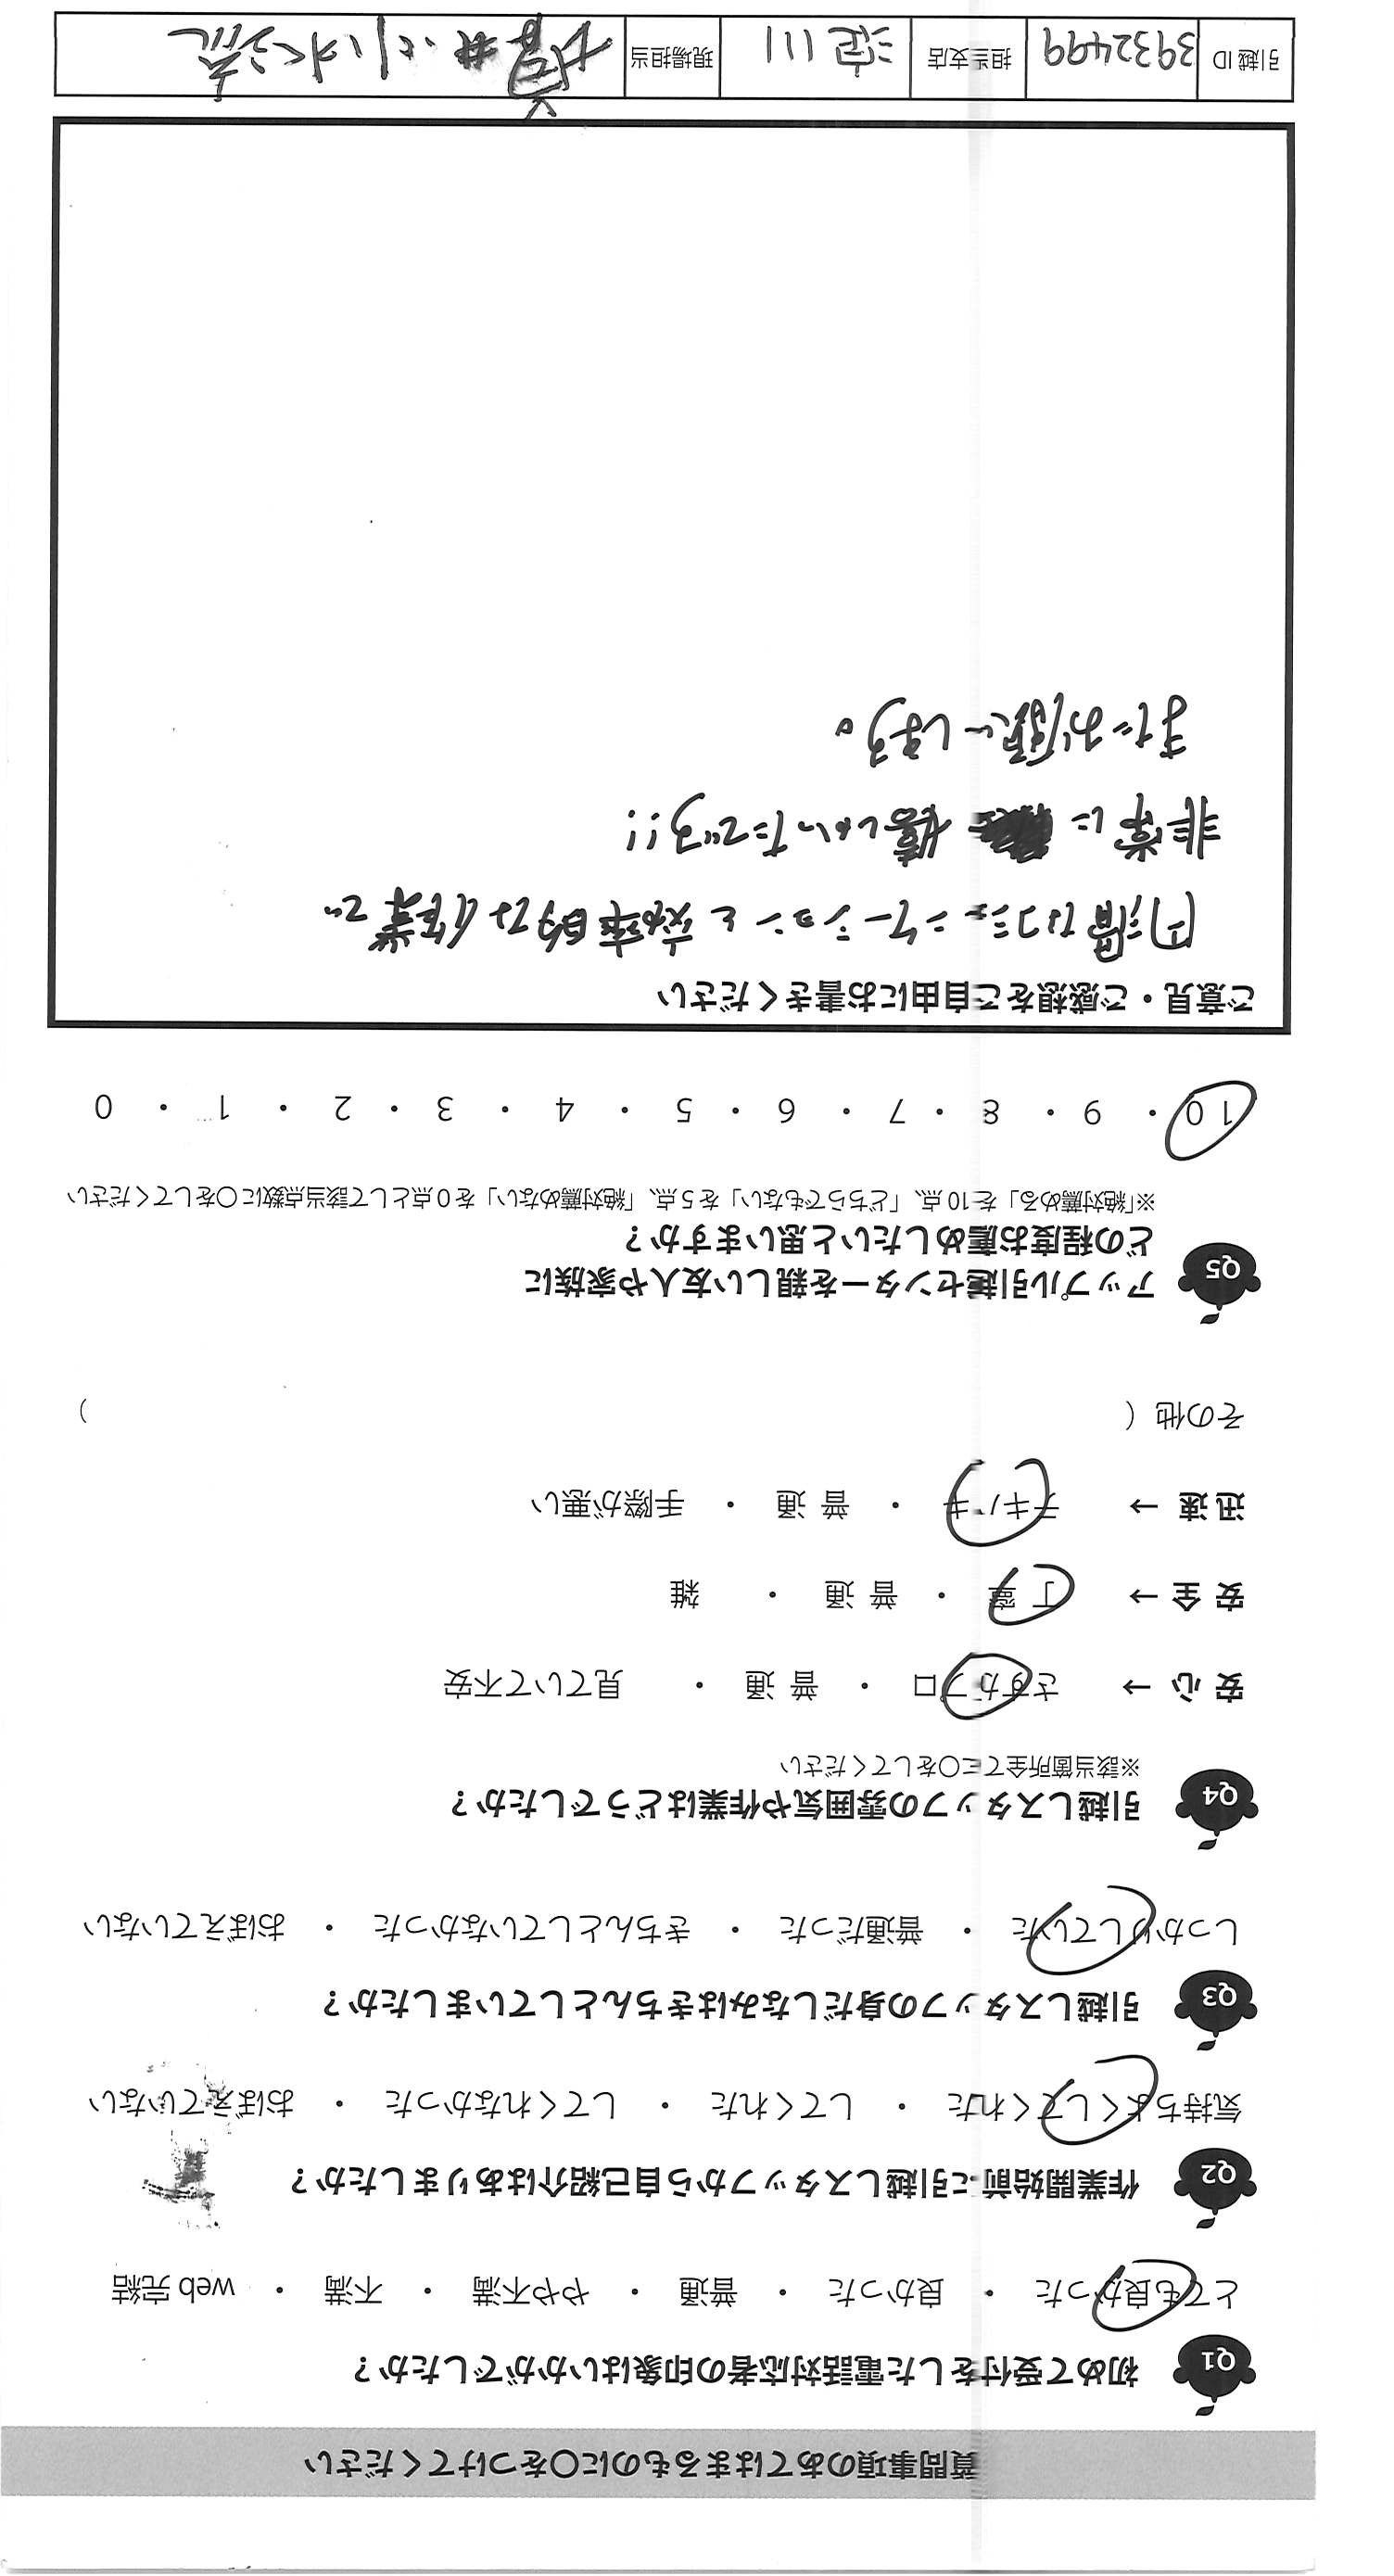 質問事項のあてはまるものに○をつけてください
Q1 初めて受付をした電話対応者の印象はいかがでしたか？
とても良かった ・ 良かった ・ 普通 ・ やや不満 ・ 不満 ・ web 完結
Q2 作業開始前に引越しスタッフから自己紹介はありましたか？
気持ちよくしてくれた ・ してくれた ・ してくれなかった ・ おぼえていない
Q3 引越しスタッフの身だしなみはきちんとしていましたか？
しっかりしていた ・ 普通だった ・ きちんとしていなかった ・ おぼえていない
Q4 引越しスタッフの雰囲気や作業はどうでしたか？
※該当箇所全てに○をしてください
安 心 → さすがプロ ・ 普 通 ・ 見ていて不安
安 全 → 丁 寧 ・ 普 通 ・ 雑
迅 速 → テキパキ ・ 普 通 ・ 手際が悪い
その他（ ）
Q5 アップル引越センターを親しい友人や家族に
どの程度お薦めしたいと思いますか？
※「絶対薦める」を10点、「どちらでもない」を5点、「絶対薦めない」を0点として該当点数に○をしてください
10 ・ 9 ・ 8 ・ 7 ・ 6 ・ 5 ・ 4 ・ 3 ・ 2 ・ 1 ・ 0
ご意見・ご感想をご自由にお書きください
円滑なコミュニケーションと効率的な作業で
非常に 嬉しかったです!!
またお願いします。
引越 ID 3932499 担当支店 淀川 現場担当